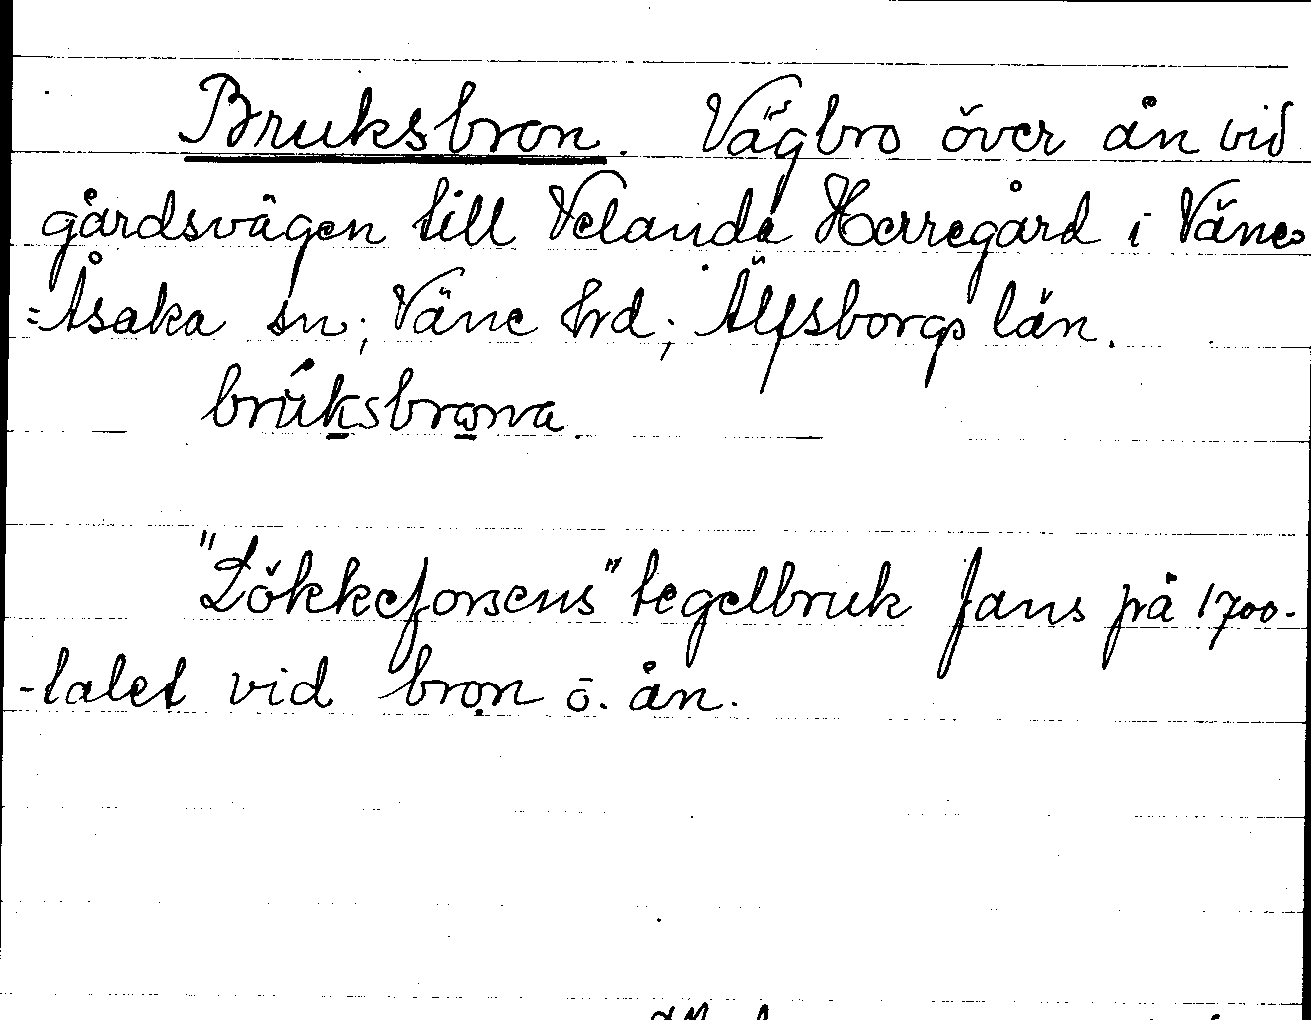 Bruksbron. Vägbro över ån vid
gårdsvägen till Velanda Herregård i Väne=
=Åsaka sn; Väne hrd; Älfsborgs län.
brúksbrona.
"Lökkeforsens" tegelbruk fans på 1700-
-talet vid bron ö. ån.